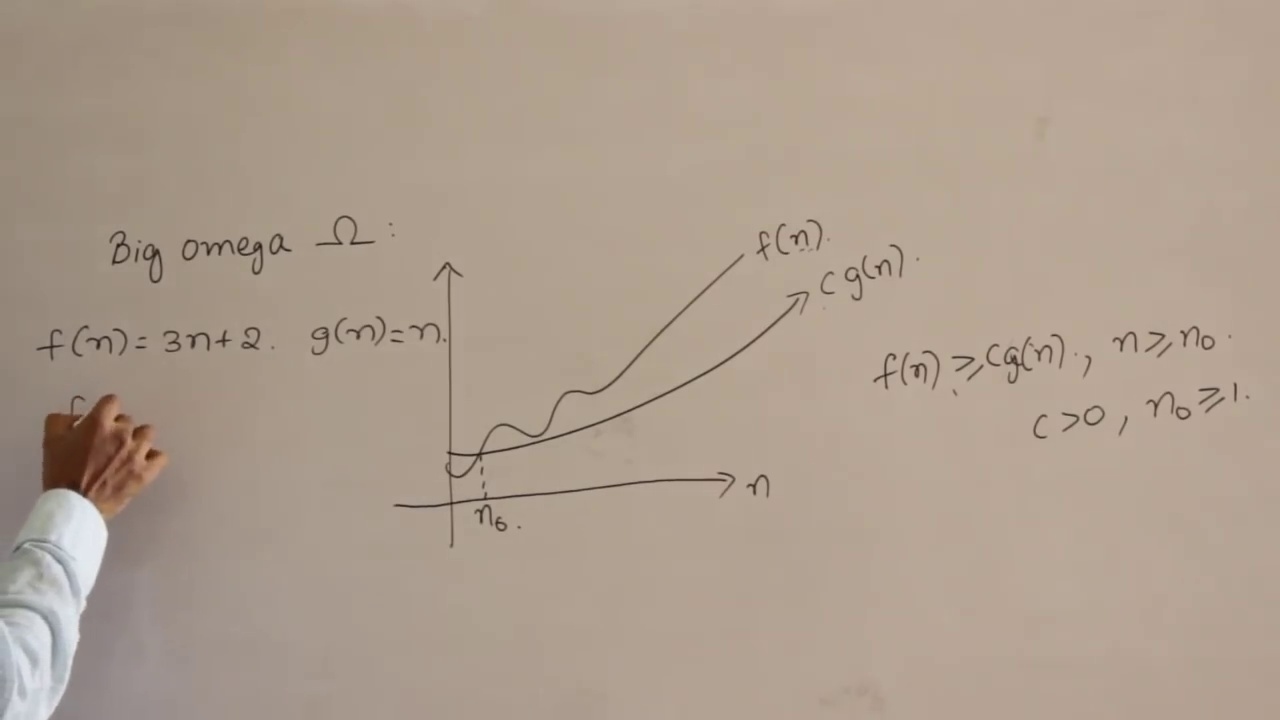 Big omega Ω:
f(n) = 3n+2. g(n)=n.
f
f(n).
c g(n).
n
n₀.
f(n) ≥ cg(n)., n ≥ n₀.
c > 0, n₀ ≥ 1.